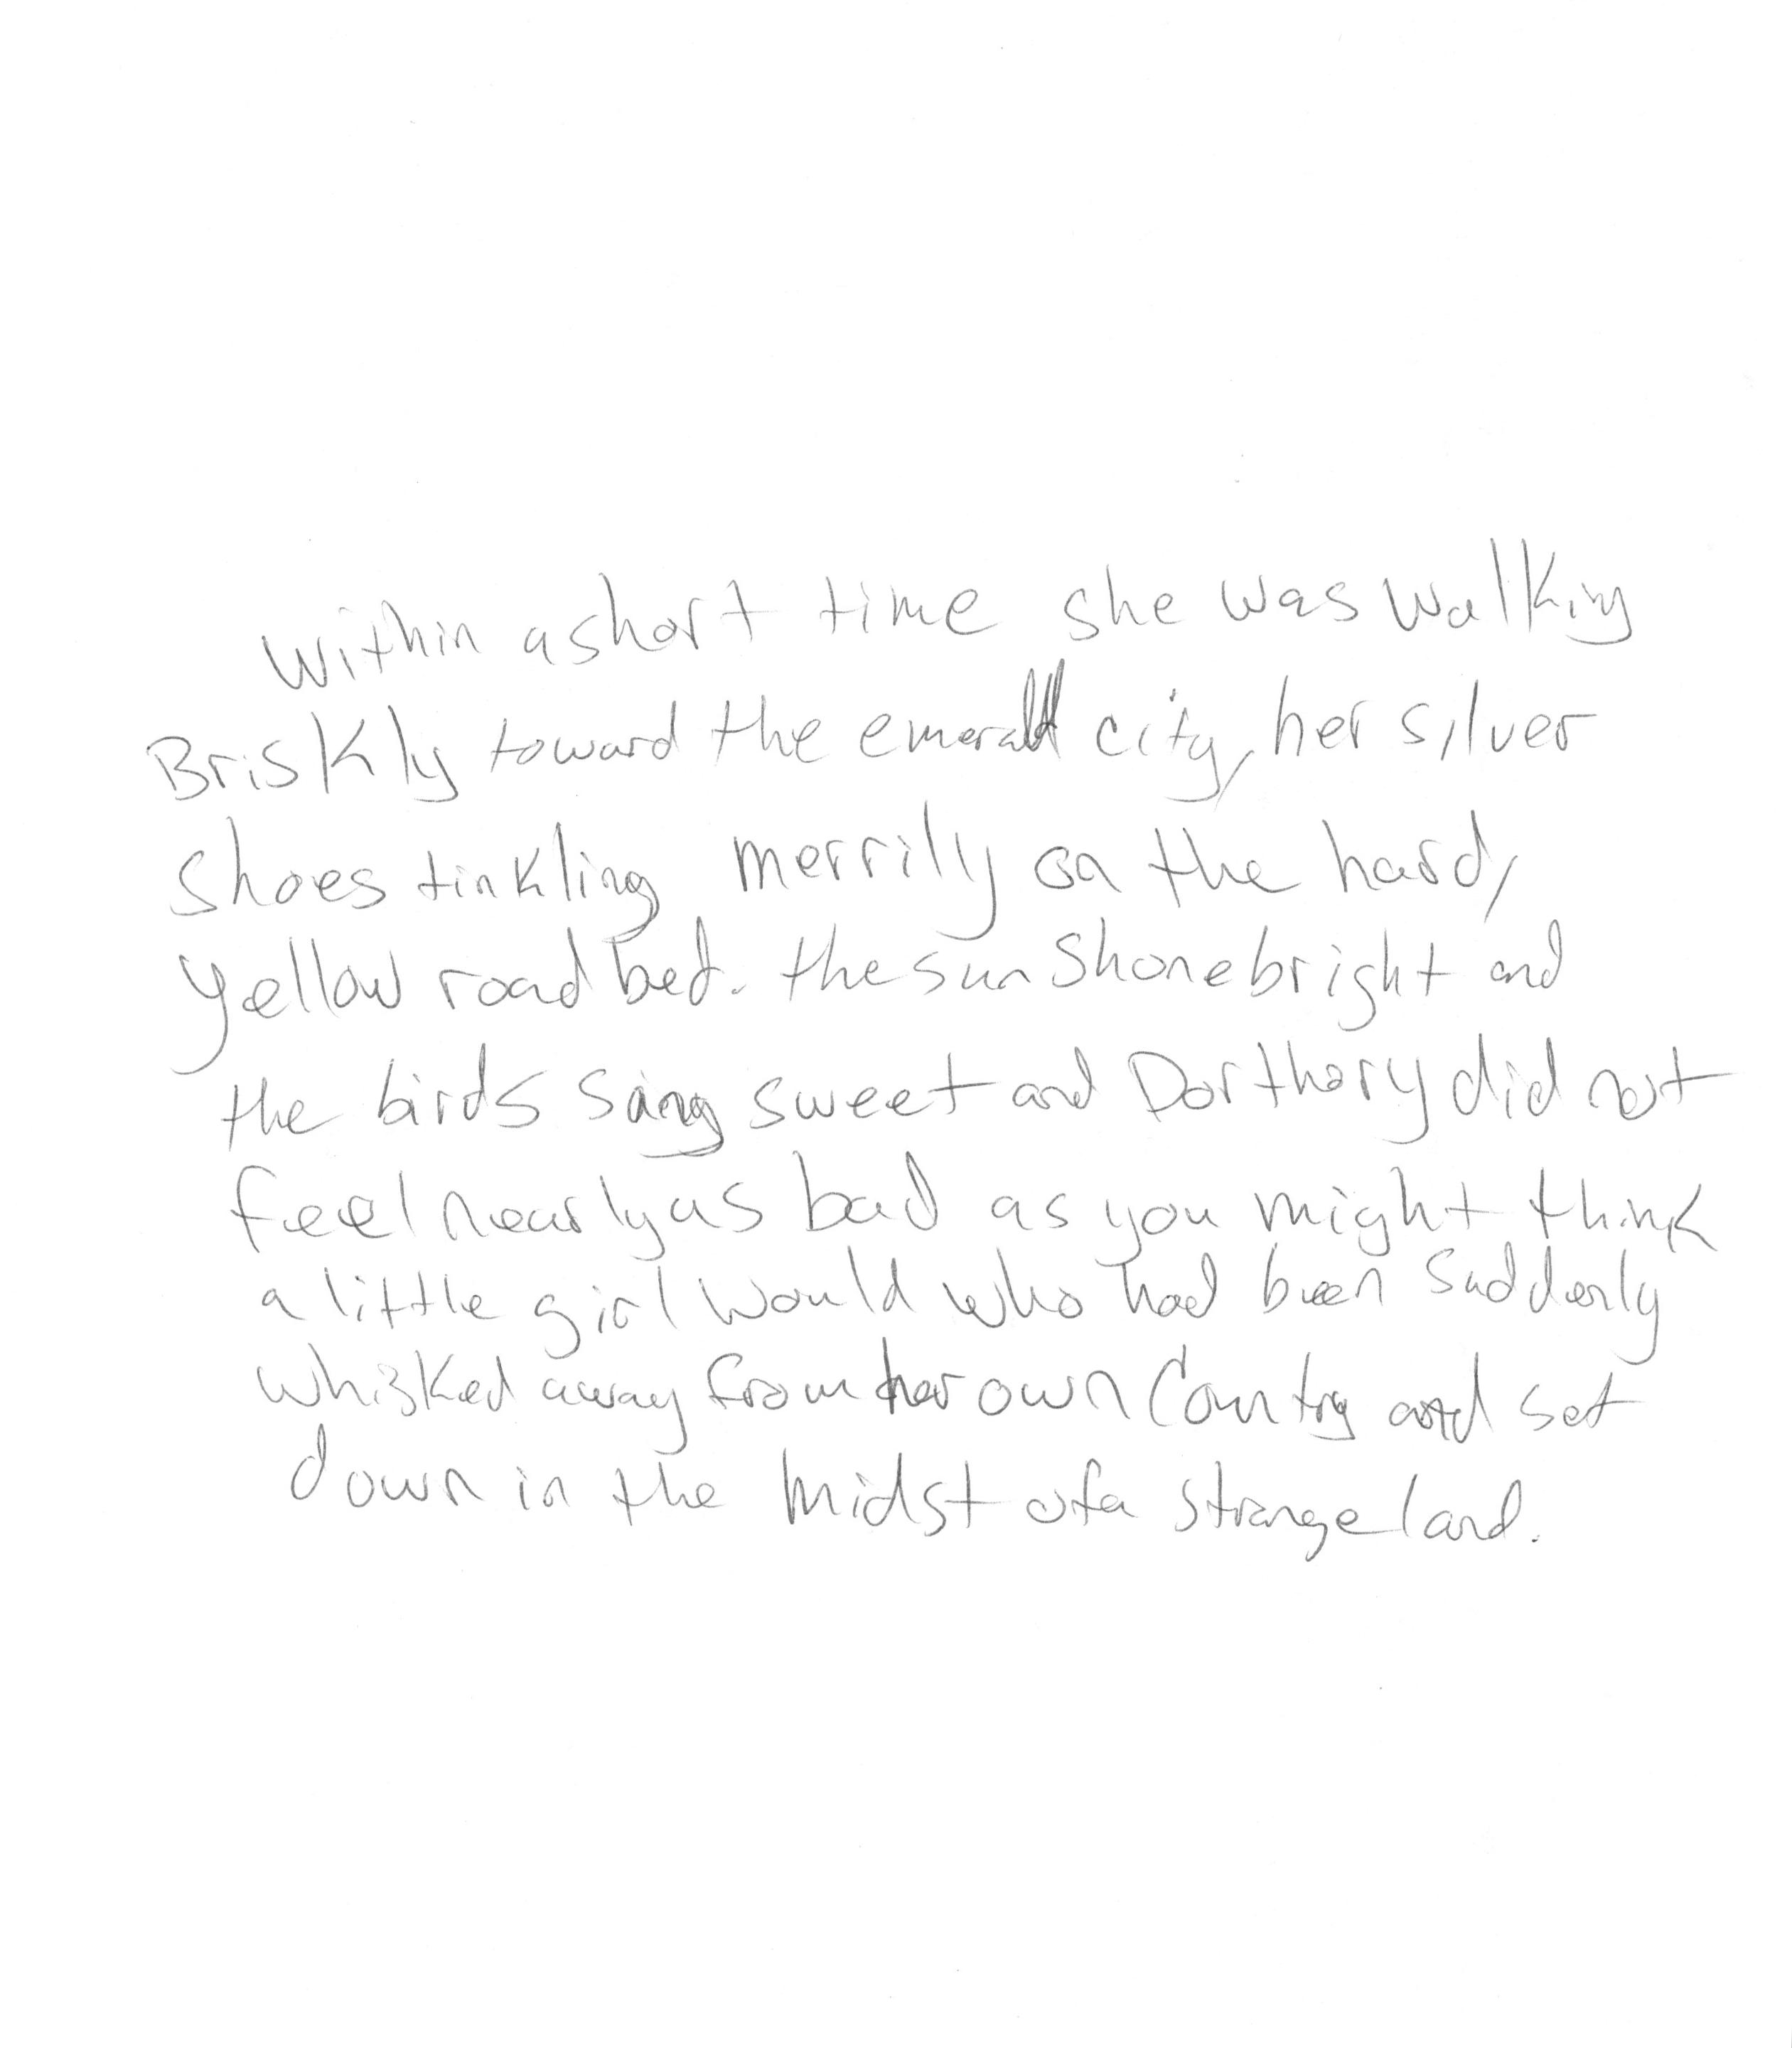 within a short time she was walking
Briskly toward the emerald city, her silver
shoes tinkling merrily on the hard,
yellow road bed. the sun shone bright and
the birds sang sweet and Dorthory did not
feel nearly as bad as you might think
a little girl would who had been suddenly
whisked away from her own Country and set
down in the midst of a strange land.